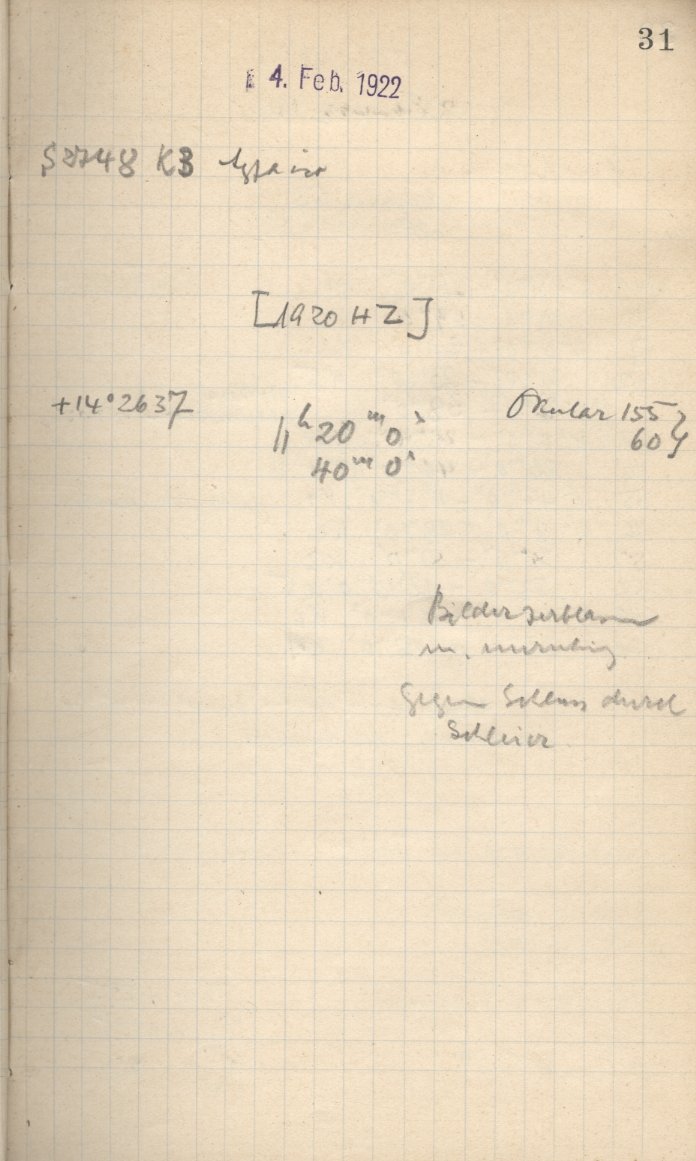 31
4. Feb. 1922
S 2748 K3
[1920 HZ]
+14°2637
11ʰ 20ᵐ 0ˢ
40ᵐ 0ˢ
Okular 155
60 }
Bilder zerblasen
u. unruhig
Gegen Schluss durch
Schleier